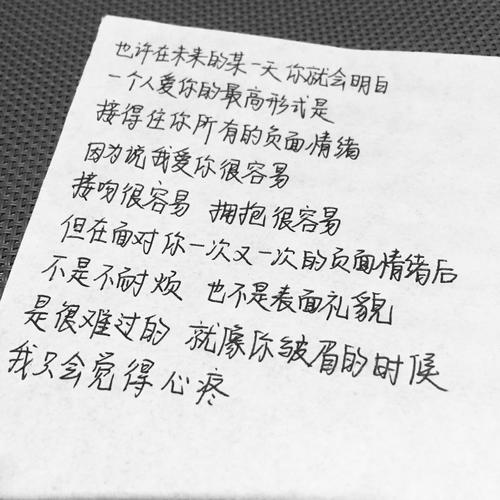 也许在未来的某一天你就会明白
一个人爱你的最高形式是
接得住你所有的负面情绪
因为说我爱你很容易
接吻很容易 拥抱很容易
但在面对你一次又一次的负面情绪后
不是不耐烦 也不是表面礼貌
是很难过的 就像你皱眉的时候
我只会觉得心疼